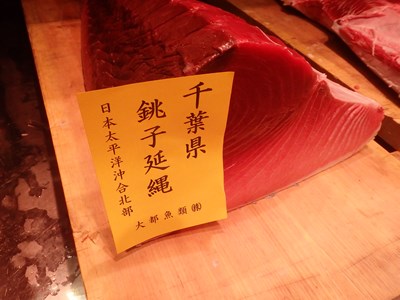 千葉県
銚子延縄
日本太平洋沖合北部
大都魚類㈱